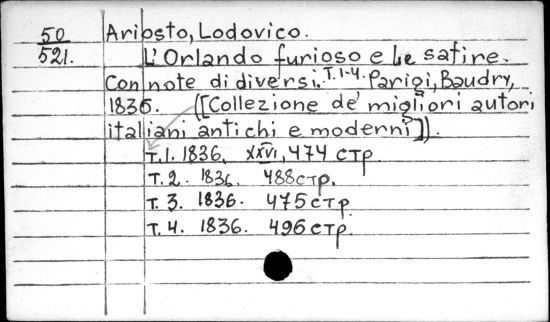 50 Ariosto, Lodovico.
521. L'Orlando furioso e le satire.
Con note di diversi. T. 1-4. Parigi, Baudry,
1836. ([Collezione de' migliori autori
italiani antichi e moderni]).
T. 1. 1836. XXVI, 474 стр.
T. 2. 1836. 488 стр.
T. 3. 1836. 475 стр.
T. 4. 1836. 496 стр.